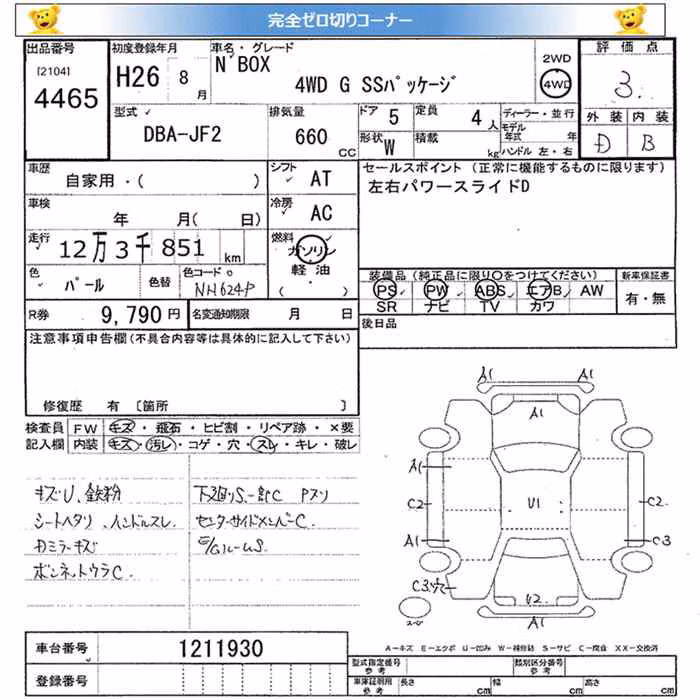 完全ゼロ切りコーナー
出品番号
[2104]
4465
初度登録年月
H26 8月
車名・グレード
N BOX
4WD G SSパッケージ
2WD
4WD
評価点
3.
外装 内装
D B
型式
DBA-JF2
排気量
660
CC
ドア 5
定員 4人
形状 W
積載 kg
ディーラー・並行
モデル年式 年
ハンドル 左・右
車歴
自家用・( )
シフト AT
車検
年 月( 日)
冷房 AC
走行
12万3千851 km
燃料
ガソリン
軽・油
・( )
色
パール
色替
色コード
NH624P
セールスポイント(正常に機能するものに限ります)
左右パワースライドD
装備品(純正品に限り○をつけてください)
PS PW ABS エアB AW
SR ナビ TV カワ
新車保証書
有・無
R券 9,790円
名変通知期限 月 日
後日品
注意事項申告欄(不具合内容等は具体的に記入して下さい)
修復歴 有 〔箇所 〕
検査員記入欄
FW キズ・飛石・ヒビ割・リペア跡・×要
内装 キズ・汚レ・コゲ・穴・スレ・キレ・破レ
キズU、鉄粉
シートヘタリ、ハンドルスレ
Dミラーキズ
ボンネットウラC
下廻りS、一部C Pスリ
センターサイドメンバーC
E/GルームS
A1 A1
A1
A1
C2
A1
U1
C2
C3
C3穴
U2
A1
A-キズ E-エクボ U-凹み W-補修跡 S-サビ C-腐食 XX-交換済
車台番号 1211930
登録番号
型式指定番号 参考
類別区分番号 参考
車庫証明用 参考
長さ cm
幅 cm
高さ cm